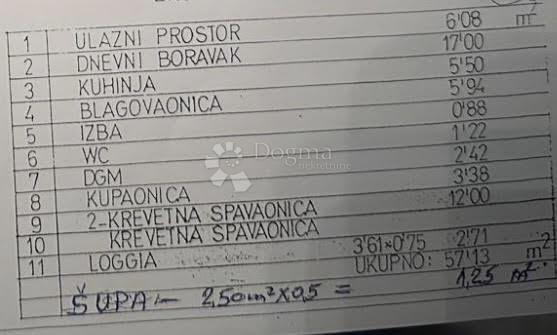 1 ULAZNI PROSTOR 6'08 m²
2 DNEVNI BORAVAK 17'00
3 KUHINJA 5'50
4 BLAGOVAONICA 5'94
5 IZBA 0'88
6 WC 1'22
7 DGM 2'42
8 KUPAONICA 3'38
9 2-KREVETNA SPAVAONICA 12'00
10 KREVETNA SPAVAONICA
11 LOGGIA 3'61×0'75 2'71
UKUPNO: 57'13 m²
ŠUPA - 2,50m²X0,5 = 1,25 m²
Dogma
nekretnine